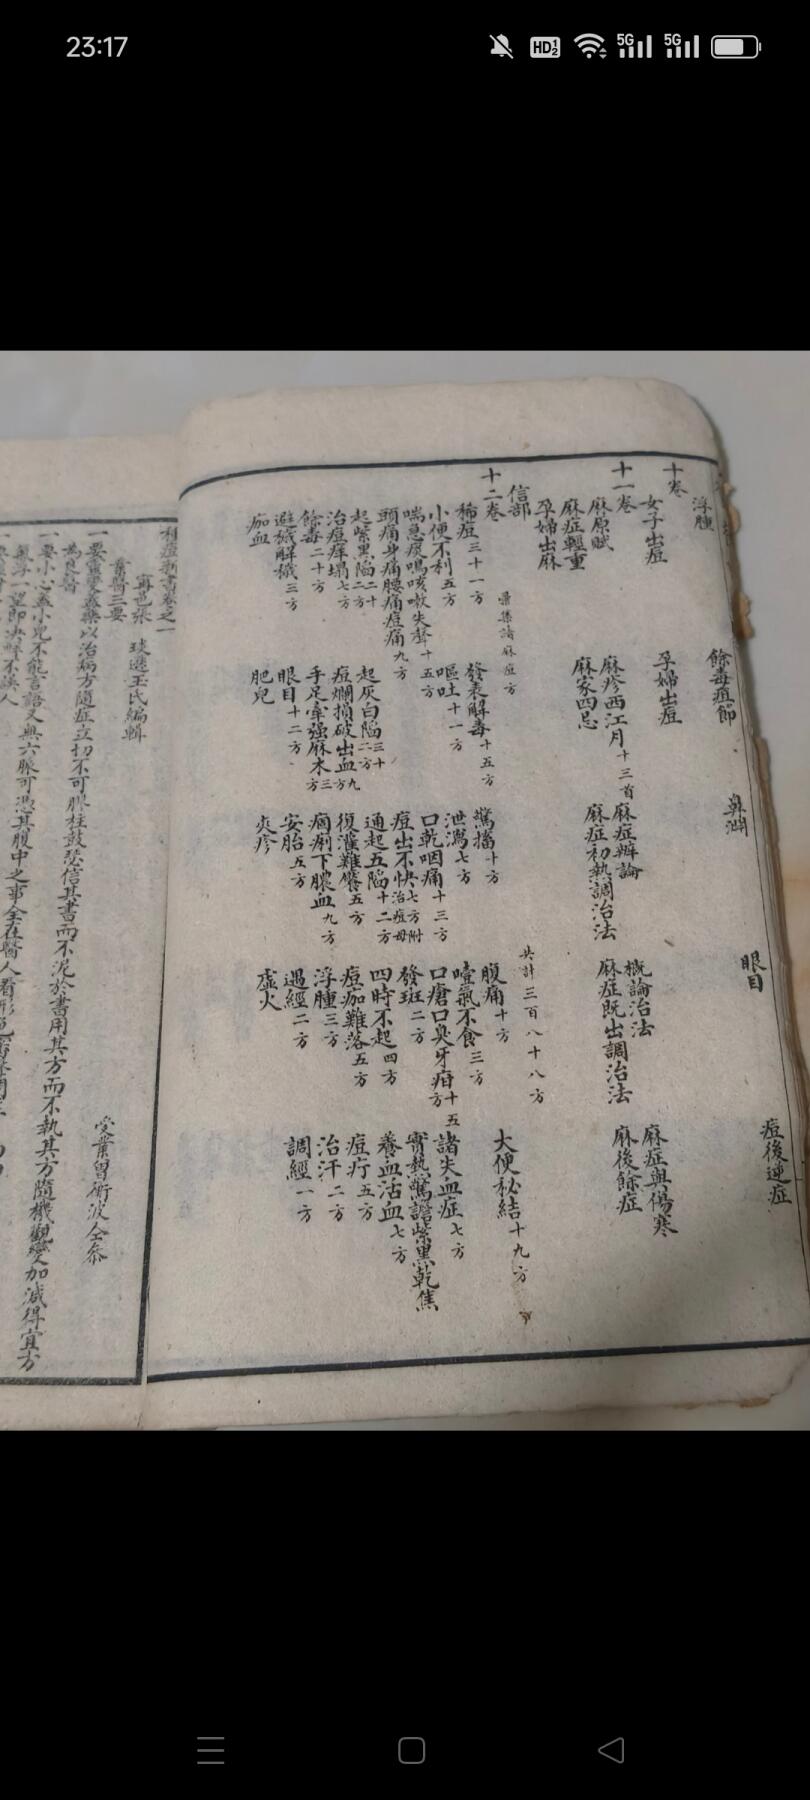 23:17
HD 1 2
5G
5G
浮腫 餘毒疽節 鼻淵 眼目 痘後連症
十卷
女子出痘 孕婦出痘
十一卷
麻原賦 麻疹西江月十三首 麻症辨論 概論治法 麻症與傷寒
麻症輕重 麻家四忌 麻症初熱調治法 麻症既出調治法 麻後餘症
孕婦出麻
信部 彙集諸麻痘方 共計三百八十八方
十二卷
稀痘三十一方 發表解毒十五方 驚搐十方 腹痛十方 大便秘結十九方
小便不利五方 嘔吐十一方 泄瀉七方 噎氣不食三方
喘急痰鳴咳嗽失聲十五方 口乾咽痛十三方 口瘡口臭牙疳十五方 諸失血症七方
頭痛身痛腰痛痘痛九方 痘出不快七方附治痘母 發斑二方 實熱驚譫紫黑乾焦
起紫黑陷二十二方 起灰白陷三十二方 通起五陷十二方 四時不起四方 養血活血七方
治痘痒塌七方 痘爛損破出血九方 復灌難饜五方 痘痂難落五方 痘疔五方
餘毒二十方 手足牽强麻木三方 痢下膿血九方 浮腫三方 治汗二方
避穢解穢三方 眼目十二方 安胎五方 遇經二方 調經一方
痂血 肥兒 夾疹 虛火
種痘新書卷之一
寧邑張 琰遜玉氏編輯 受業曾術波仝叅
業醫三要
一要靈變蓋藥以治病方隨症立切不可膠柱鼓瑟信其書而不泥於書用其方而不執其方隨機觀變加減得宜方
為良醫
一要小心蓋小兒不能言語又無六脉可憑其腹中之事全在醫人看形